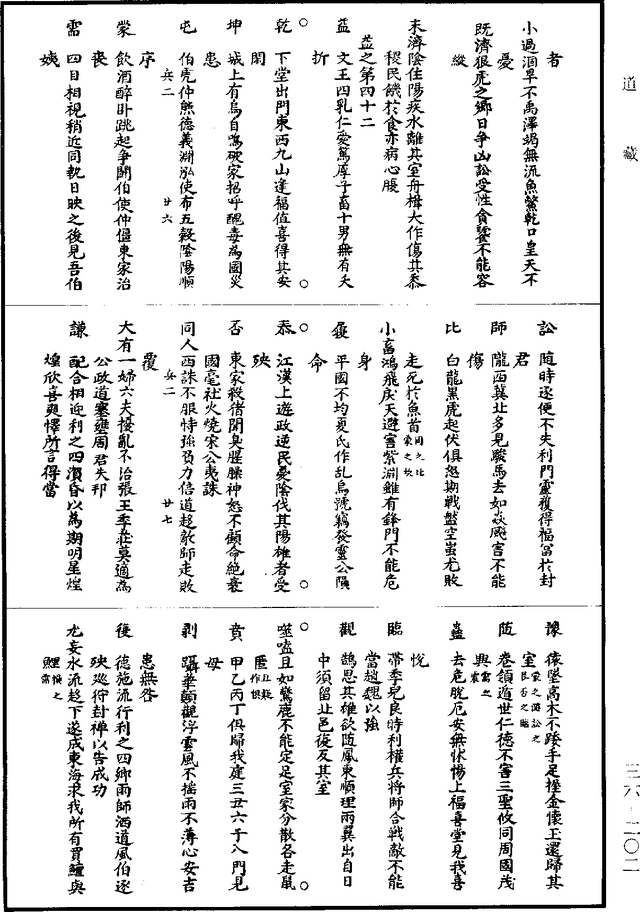 道藏
者
小過涸旱不禹澤竭無流魚鱉乾口皇天不
憂
既濟狼虎之鄉日爭凶訟受性貪饕不能容
縱
未濟陰住陽疾水離其室舟楫大作傷其黍
稷民饑於食亦病心腹
益之第四十二
益　文王四乳仁愛篤厚子畜十男無有夭
折
乾　下堂出門東西九山逢福值喜得其安
閑
坤　城上有烏自鳴破家招呼酖毒為國災
患
屯　伯虎仲熊德義淵泓使布五穀陰陽順
序　兵二　廿六
蒙　飲酒醉卧跳起爭鬭伯使仲僵東家治
喪
需　四目相視稍近同軌日昳之後見吾伯
姨
訟　隨時逐便不失利門靈獲得福富於封
君
師　隴西冀北多見駿馬去如焱颷害不能
傷
比　白龍黑虎起伏俱怒期戰盤空蚩尤敗
走死於魚首同人之比蒙之坎
小畜鴻飛戾天避害紫淵雖有鋒門不能危
身
履　平國不均夏氏作乱烏號竊發靈公隕
命
泰　江漢上遊政逆民憂陰伐其陽雄者受
殃
否　東家殺猪聞臭腥臊神怒不顧命絕衰
國亳社火燒宋公夷誅
同人西誅不服恃強負力倍道趍敵師走敗
覆　兵二　廿七
大有一婦六夫擾亂不治張王季莊莫適為
公政道壅塞周君失邦
謙　配合相迎利之四瀆昏以為期明星煌
煌欣喜爽懌所言得當
豫　猿墜高木不踒手足握金懷玉還歸其
室蒙之隨訟之艮否之臨
隨　卷領遁世仁德不害三聖攸同周國茂
興需之震
蠱　去危脫厄安無怵惕上福喜堂見我喜
悅
臨　帶季兒良時利權兵將師合戰敵不能
當趙魏以強
觀　鵠思其雄欲隨鳳東順理兩翼出自日
中須留北邑復反其室
噬嗑且如驚鹿不能定足室家分散各走鼠
匿且疑作俱
賁　甲乙丙丁俱歸我庭三丑六子入門見
母
剝　躡華顛觀浮雲風不搖雨不薄心安吉
患無咎
復　德施流行利之四鄉雨師洒道風伯逐
殃巡狩封禪以告成功
无妄水流趍下遂成東海求我所有買鱣與
鯉
三六-二〇二